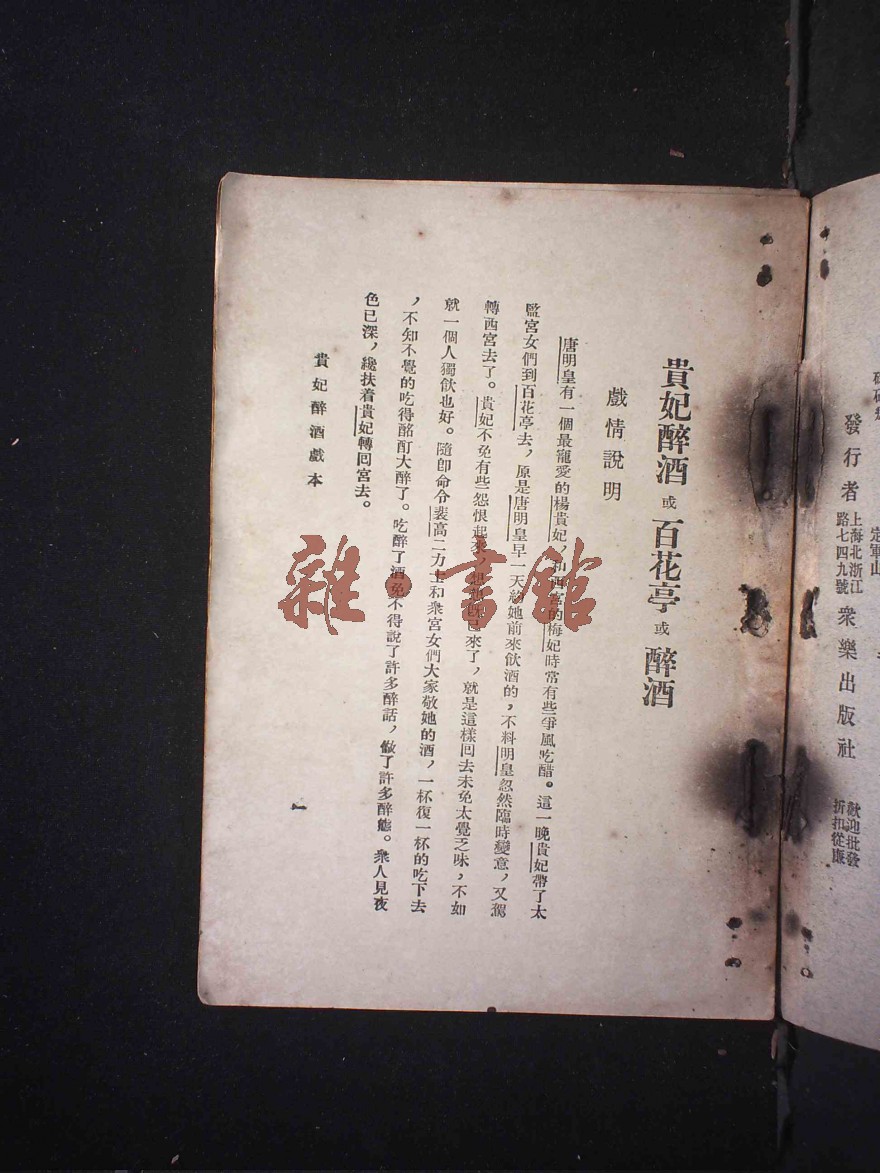 貴妃醉酒 或 百花亭 或 醉酒
戲情說明
唐明皇有一個最寵愛的楊貴妃，和西宮的梅妃時常有些爭風吃醋。這一晚貴妃帶了太
監宮女們到百花亭去，原是唐明皇早一天約她前來飲酒的，不料明皇忽然臨時變意，又駕
轉西宮去了。貴妃不免有些怨恨起來，已來了，就是這樣回去未免太覺乏味，不如
就一個人獨飲也好。隨即命令裴高二力士和衆宮女們大家敬她的酒，一杯復一杯的吃下去
，不知不覺的吃得酩酊大醉了。吃醉了酒免不得說了許多醉話，做了許多醉態。衆人見夜
色已深，纔扶着貴妃轉回宮去。
貴妃醉酒戲本
一
雜·書館
定軍山
發行者 上海北浙江路七四九號 衆樂出版社
歡迎批發
折扣從廉